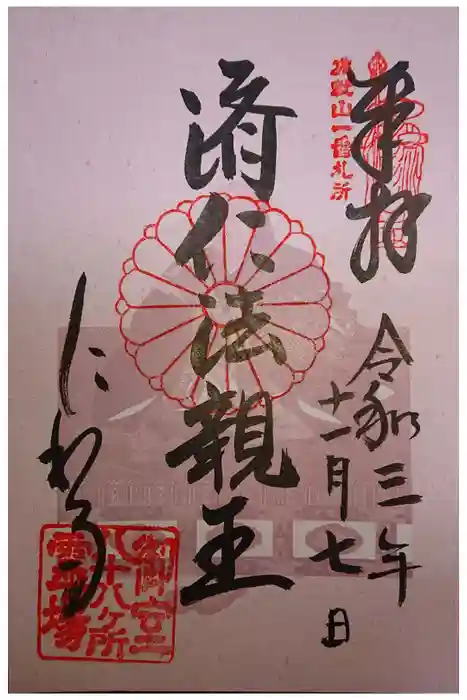 奉拝
成就山一番札所
令和三年
十一月七日
済仁法親王
御室
八十八ヶ所
霊場